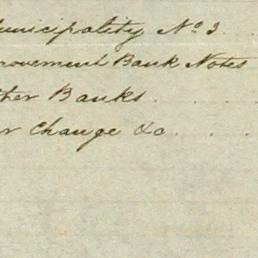 unicipality No 3 . .
provement Bank Notes
ther Banks . . .
er Change &c . . .